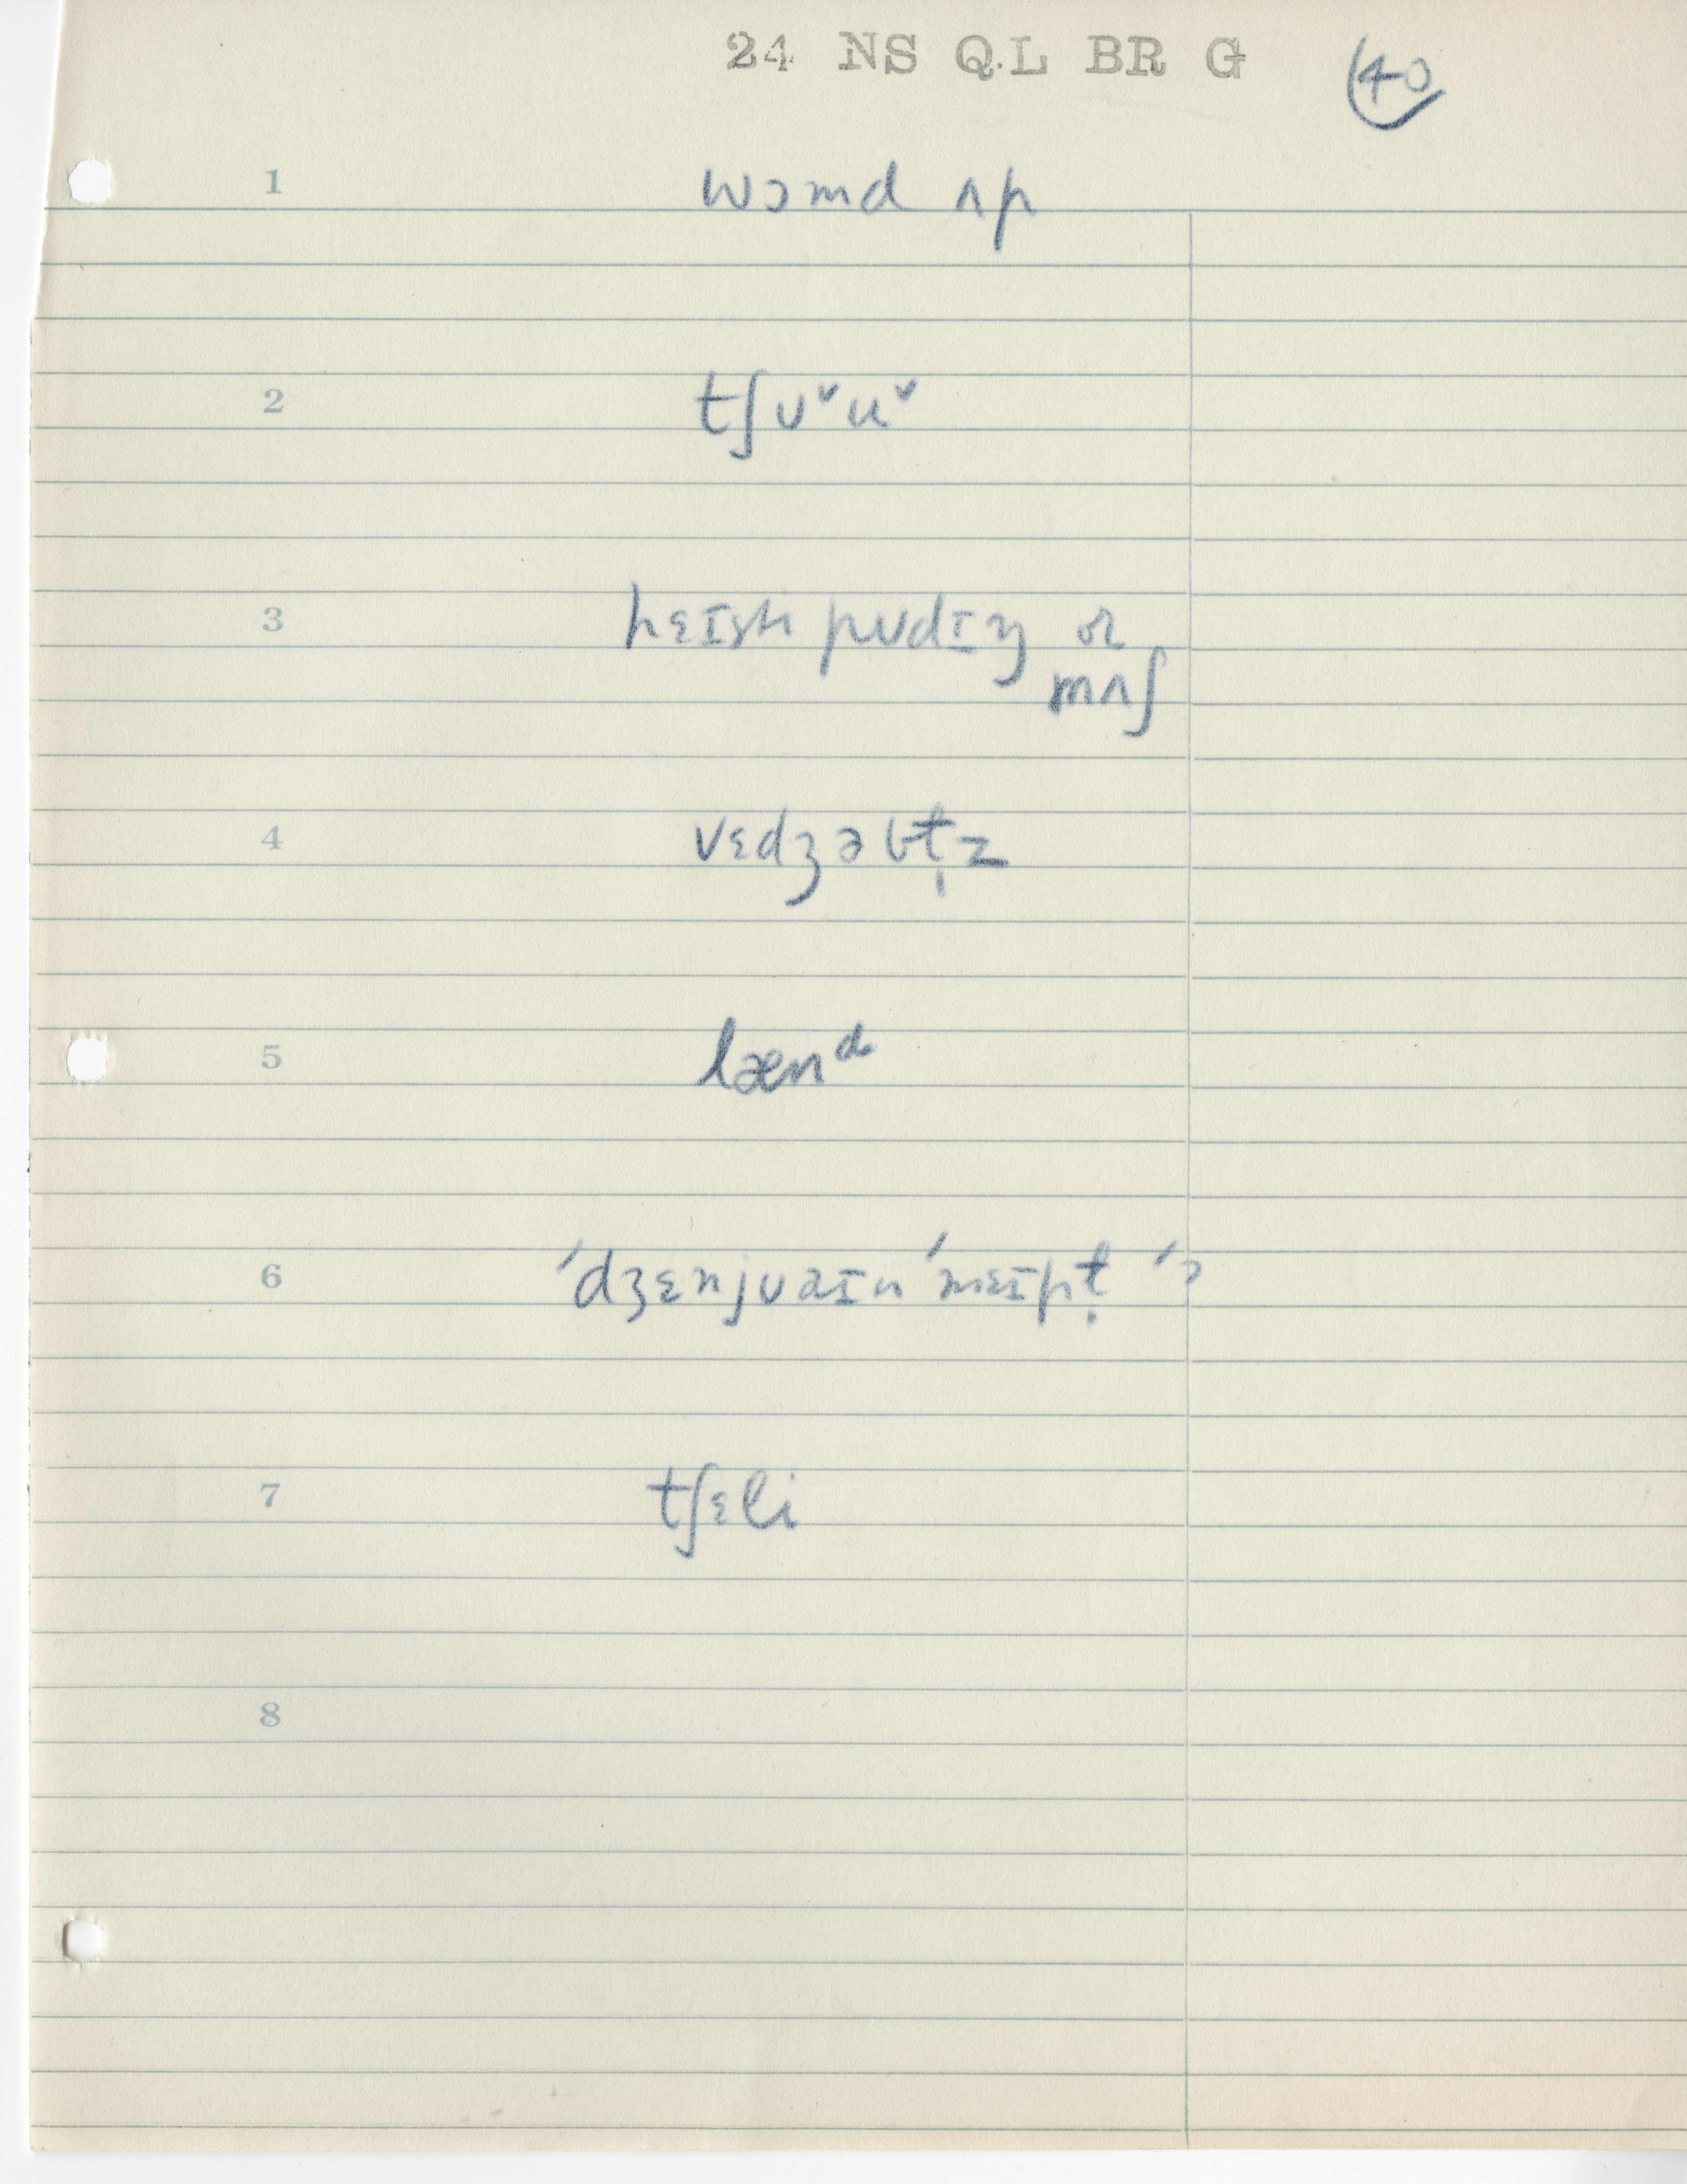 24 NS Q.L BR G 40
1 wɔmd ʌp
2 tʃʊˇuˇ
3 hɛɪsti pʊdɪŋ or
mʌʃ
4 vɛdʒəbt̩z
5 lænᵈ
6 'dʒɛnjʊaɪn 'meɪpt̩
7 tʃɛli
8